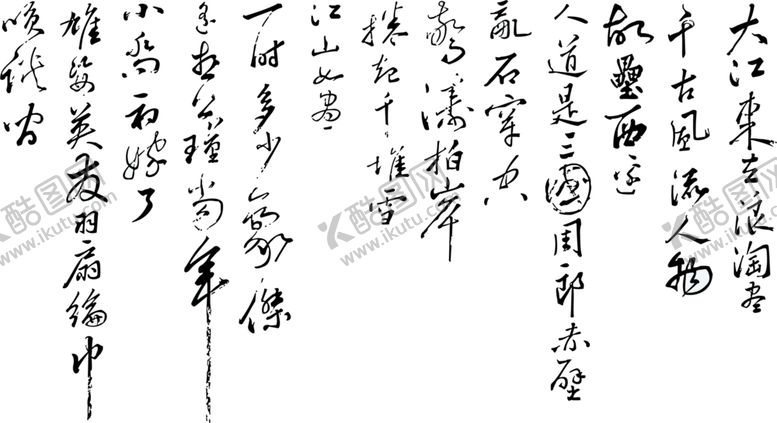 大江東去浪淘盡
千古風流人物
故壘西邊
人道是三國周郎赤壁
亂石穿空
驚濤拍岸
捲起千堆雪
江山如畫
一时多少豪傑
遙想公瑾當年
小喬初嫁了
雄姿英發羽扇綸巾
談間
酷图网
www.ikutu.com
酷图网
www.ikutu.com
酷图网
www.ikutu.com